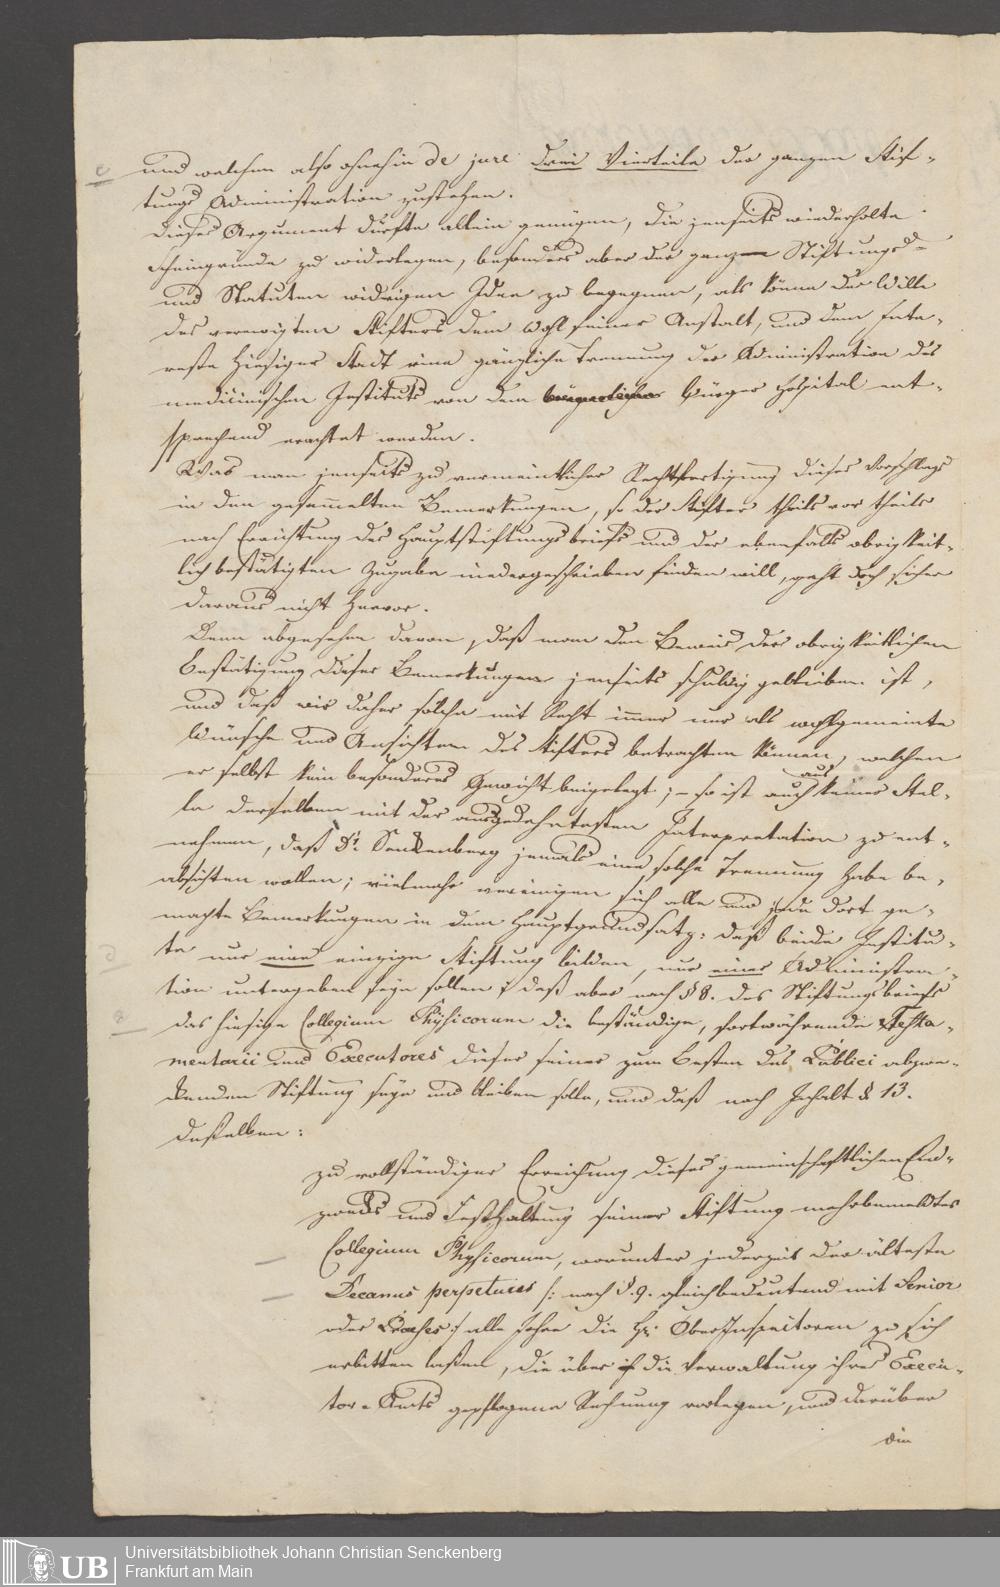 und welchen also ohnehin de jure drei Viertheile der ganzen Stif-
tungs Administration zustehen.
Dieses Argument dürfte allein genügen, die jenseits wiederholte
Scheingründe zu widerlegen, besonders aber der ganzen Stiftungs-
und Statuten widrigen Idee zu begegnen, als könne der Wille
des verewigten Stifters dem Wohl seiner Anstalt, und dem Inte-
resse hiesiger Stadt eine gänzliche Trennung der Administration des
medicinischen Instituts von dem Bürger Hospital ent-
sprechend erachtet werden.
Was man jenseits zu vermeintlicher Rechtfertigung dieses Vorschlags
in den gesammelten Bemerkungen, so der Stifter theils vor theils
nach Errichtung des Hauptstiftungsbriefs und der ebenfalls obrigkeit-
lich bestätigten Zugabe niedergeschrieben finden will, geht doch sicher
daraus nicht hervor.
Denn abgesehen davon, daß man den Beweis der obrigkeitlichen
Bestätigung dieser Bemerkungen jenseits schuldig geblieben ist,
und daß wir daher solche mit Recht immer nur als wohlgemeinte
Wünsche und Ansichten des Stifters betrachten können, welchen
er selbst kein besonderes Gewicht beigelegt; – so ist auch aus keiner Stel-
le derselben mit der ausgedehntesten Interpretation zu ent-
nehmen, daß Dr. Senckenberg jemals eine solche Trennung habe be-
absichten wollen; vielmehr vereinigen sich alle und jede dort ge-
machte Bemerkungen in dem Hauptgrundsatz: daß beide Institu-
te nur eine einzige Stiftung bilden, nur einer Administra-
tion untergeben seyn sollen; daß aber nach § 8. des Stiftungsbriefs
das hiesige Collegium Physicorum die beständige, fortwährende Testa-
mentarii und Executores dieser seiner zum Besten des Publici abzwe-
ckenden Stiftung seye und bleiben solle, und daß nach Inhalt § 13.
desselben:
zu vollständiger Erreichung dieses gemeinschaftlichen End-
zwecks und Festhaltung seiner Stiftung mehrbemeldtes
Collegium Physicorum, worunter jederzeit der älteste
Decanus perpetuus /: nach §. 9. gleichbedeutend mit Senior
oder :/ alle Jahre die H. OberInspectoren zu sich
erbitten lassen, die über die Verwaltung ihres Execu-
tor-Amts gepflogene Rechnung vorlegen, und darüber
die
Universitätsbibliothek Johann Christian Senckenberg
Frankfurt am Main
UB